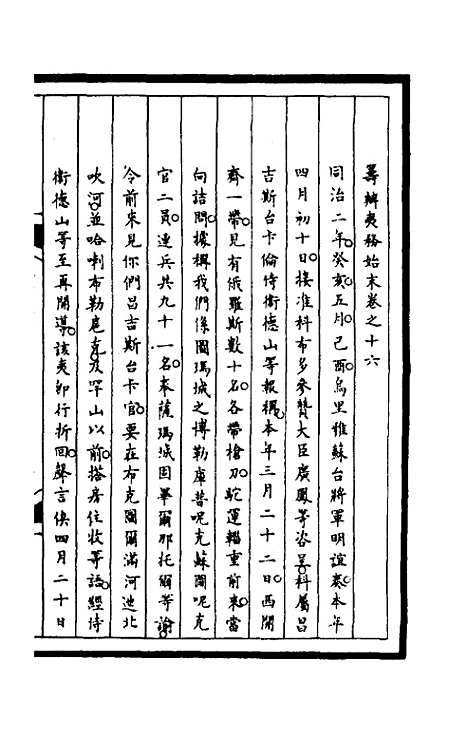 籌辦夷務始末卷之十六
同治二年癸亥五月己酉烏里雅蘇台將軍明誼奏本年
四月初十日接准科布多參贊大臣廣鳳等咨呈科屬昌
吉斯台卡倫侍衛德山等報稱本年三月二十二日西開
齊一帶見有俄羅斯數十名各帶槍刀駝運輜重前來當
向詰問據稱我們係圖瑪城之博勒庫普呢克蘇圖呢克
官二員連兵共九十一名奉薩瑪城固畢爾那托爾等諭
令前來見你們昌吉斯台卡官要在布克圖爾滿河迆北
吹河並哈喇布勒扈克及罕山以前搭房住牧等語經侍
衛德山等至再開導該夷卯行折回聲言俟四月二十日